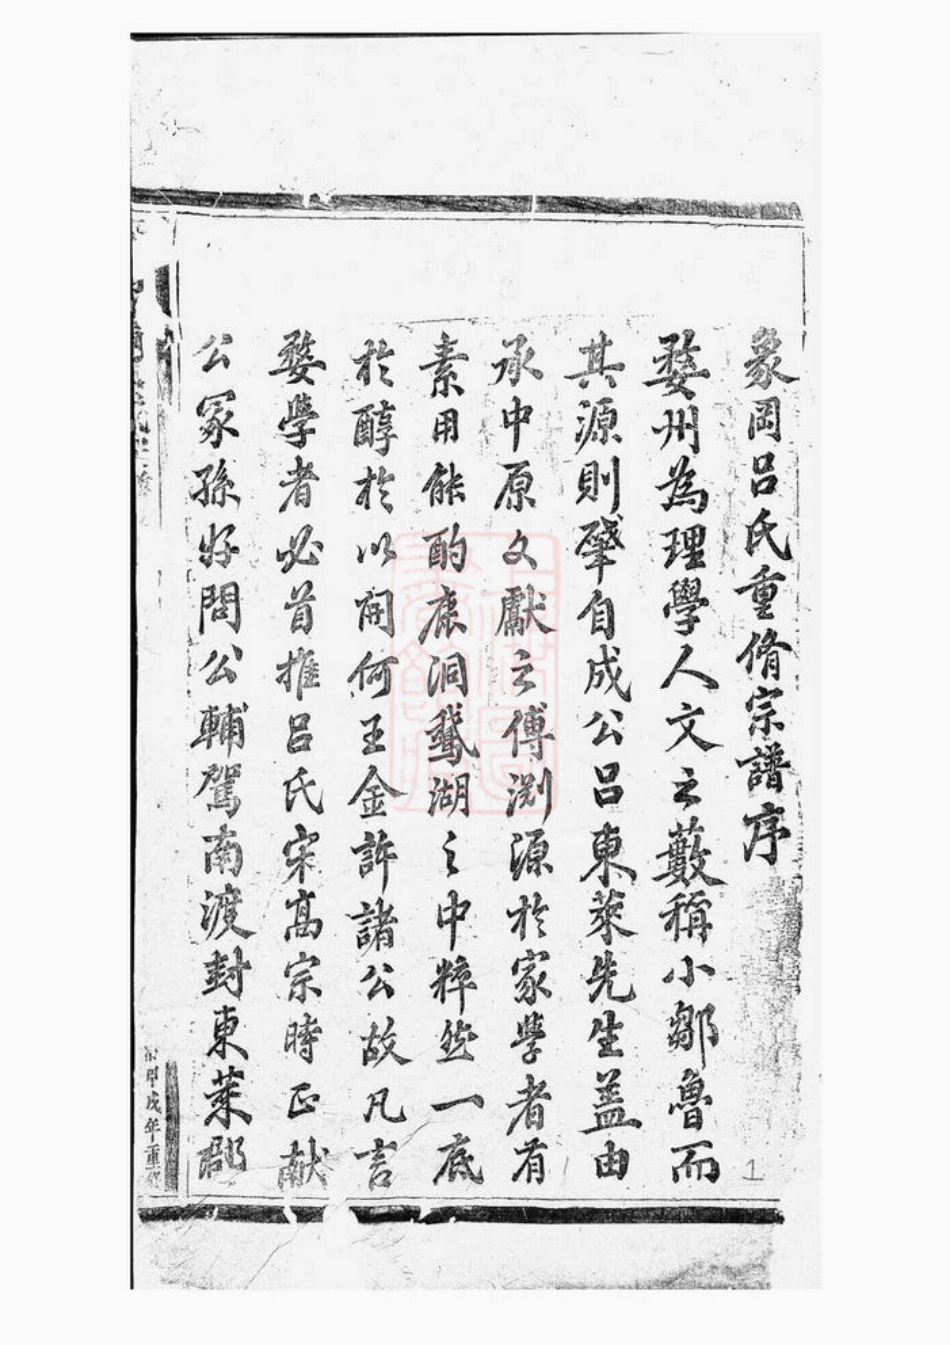 象岡呂氏重脩宗譜序
婺州為理學人文之藪稱小鄒魯而
其源則肇自成公呂東萊先生盖由
承中原文獻之傳渊源於家學者有
素用能酌鹿洞鵞湖之中粹然一底
於醇於以開何王金許諸公故凡言
婺學者必首推呂氏宋髙宗時正献
公冢孫好問公輔駕南渡封東萊郡
甲戌年重
1